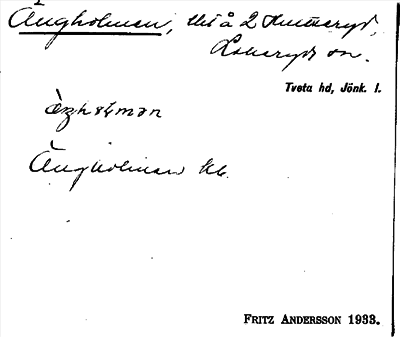 Ängholmen, th å 2 Hultaryd,
Lekeryds sn.
Tveta hd, Jönk. l.
Ängholmen kb.
FRITZ ANDERSSON 1933.